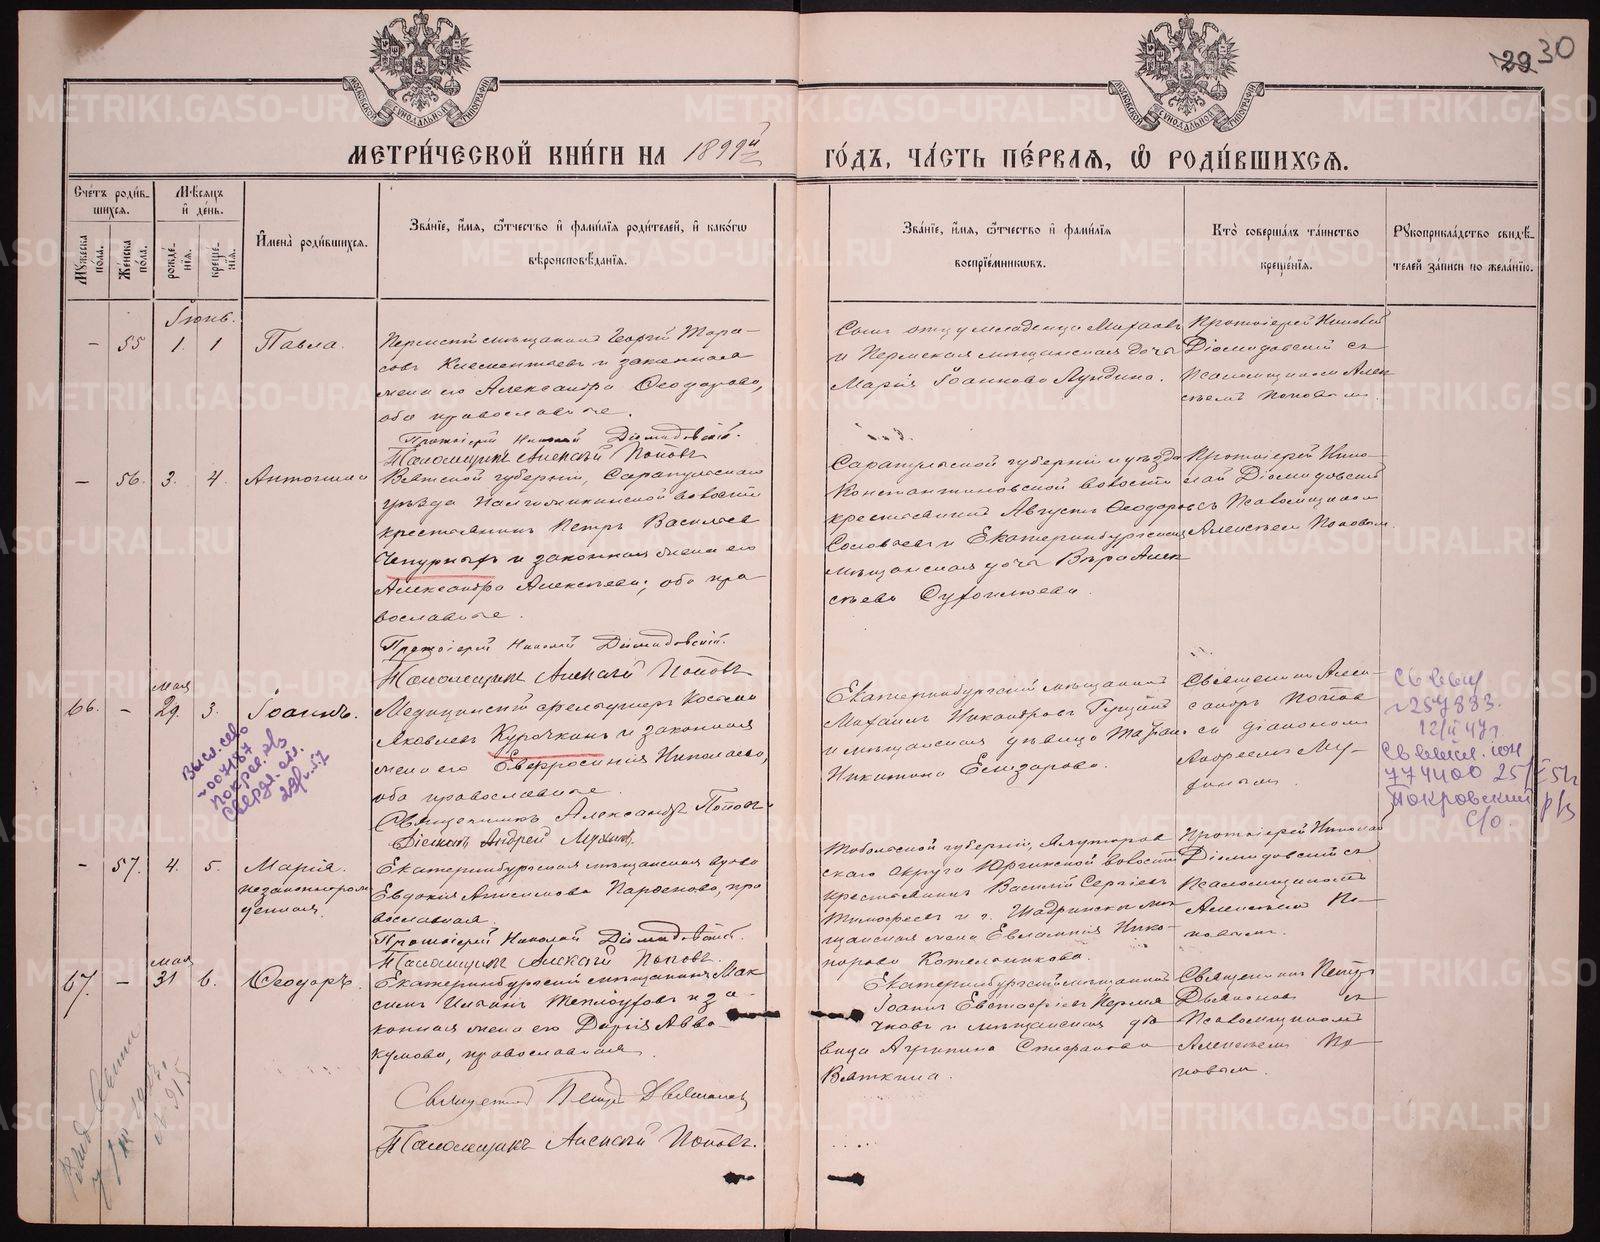 30
29
МЕТРИ́ЧЕСКОЙ КНИ́ГИ НА 1899й ГО́ДЪ, ЧА́СТЬ ПЕ́РВАЯ, Ѡ҆ РОДИ́ВШИХСЯ.
Сче́тъ роди́в-
шихся.
Мꙋ́жеска пола.
Же́нска пола.
Мѣ́сяцъ
и҆ де́нь.
рожде́-
нїя.
креще́-
нїя.
И҆мена̀ роди́вшихся.
Зва́нїе, и҆́мя, ѻ҆́тчество и҆ фами́лїя роди́телей, и҆ како́гѡ
вѣроисповѣ́данїя.
Зва́нїе, и҆́мя, ѻ҆́тчество и҆ фами́лїя
воспрїе́мникѡвъ.
Кто̀ соверша́лъ та́инство
креще́нїя.
Рꙋкоприкла́дство свидѣ́-
телей за́писи по жела́нїю.
Іюнь.
- 55 1. 1 Павла.
Пермскій мѣщанинъ Георгій Тара-
совъ Климентьевъ и законная
жена его Александра Ѳеодорова,
оба православные.
Протоіерей Николай Діомидовскій.
Псаломщикъ Алексѣй Поповъ
и Пермская мѣщанская дочь
Марія Іоаннова Лундина.
Протоіерей Николай
Діомидовскій съ
Псаломщикомъ Алек
сѣемъ Поповымъ.
- 56. 3. 4. Антонина
Вятской губерніи, Сарапульскаго
уѣзда
крестьянинъ Петръ Васильевъ
Чепурныхъ и законная жена его
Александра Алексѣева, оба пра
вославные.
Протоіерей Николай Діомидовскій.
Псаломщикъ Алексѣй Поповъ
Сарапульской губерніи и уѣзда
Константиновской волости
крестьянинъ Августъ Ѳеодоровъ
Соловьевъ и Екатеринбургская
мѣщанская дочь Вѣра Алек
сѣева
Протоіерей Нико
лай Діомидовскій
съ Псаломщикомъ
Алексѣемъ Поповымъ.
66. - мая 29. 3. Іоаннъ.
Медицинскій фельдшеръ Косьма
Яковлевъ Курочкинъ и законная
жена его Евфросинія Николаева,
оба православные.
Священникъ Александръ Поповъ
Діаконъ Андрей Мухинъ.
Екатеринбургскій мѣщанинъ
Михаилъ Никандровъ
и мѣщанская дѣвица Татіана
Никитина Елизарова.
Священникъ Алек-
сандръ Поповъ
съ діакономъ
Андреемъ Му-
хинымъ.
Выс. св
007187
Покров. р/з
Сверд. обл.
Св выд
№257883.
12/II 47г
774400 25/ 51г
Покровский р/з
с/о
- 57. 4. 5. Марія.
незаконнорож
денная.
Екатеринбургская мѣщанская вдова
Евдокія Анисимова Парѳенова, пра
вославная.
Протоіерей Николай Діомидовскій.
Псаломщикъ Алексѣй Поповъ.
Тобольской губерніи, Ялуторов
скаго округа Юргинской волости
крестьянинъ Василій Сергіевъ
Тимофеевъ и г. Шадринска мѣ
щанская жена Евлампія Нико-
норова Котельникова.
Протоіерей Николай
Діомидовскій съ
Псаломщикомъ
Алексѣемъ По-
повымъ.
67. - мая 31 6. Ѳеодоръ.
Екатеринбургскій мѣщанинъ Мак
симъ Ильинъ Теплоуховъ и за-
конная жена его Дарія Авва-
кумова, православная.
Священникъ Петръ Двиняниновъ
Псаломщикъ Алексѣй Поповъ.
Екатеринбургскій мѣщанинъ
Іоаннъ Евстафіевъ Пермя
ковъ и мѣщанская дѣ
вица Агрипина Стефанова
Вяткина.
Священникъ Петръ
съ
Псаломщикомъ
Алексѣемъ По
повымъ.
METRIKI.GASO-URAL.RU